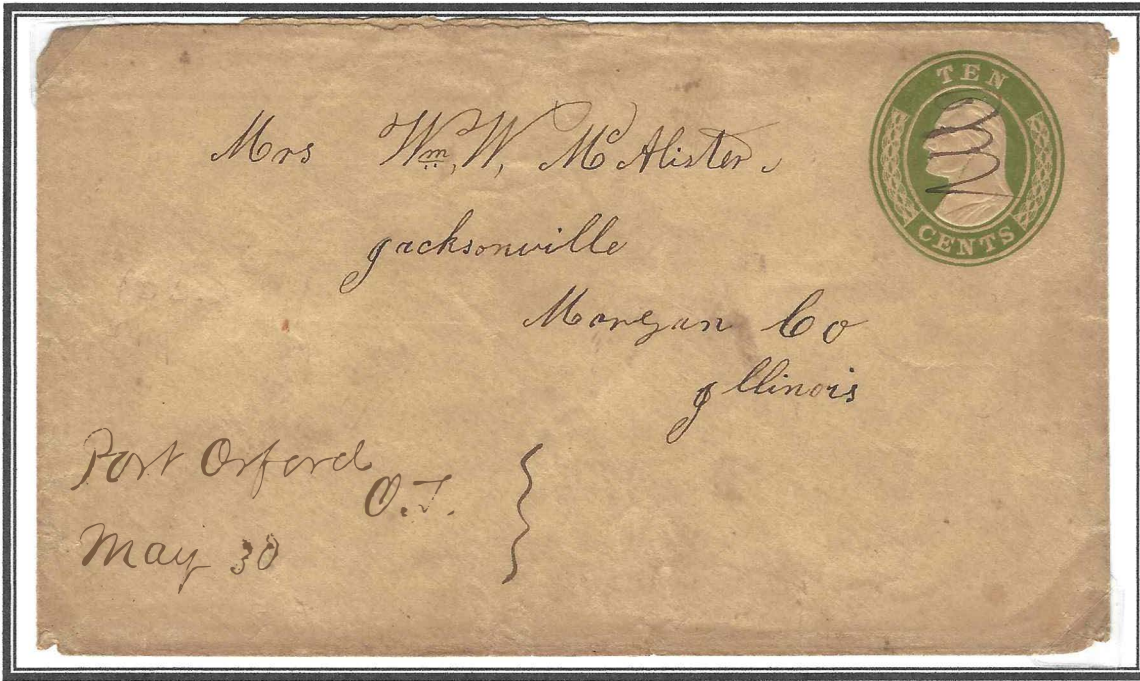 TEN
CENTS
Mrs Wm. W. McAlister.
Jacksonville
Morgan Co
Illinois
Port Orford
O.T.
May 30